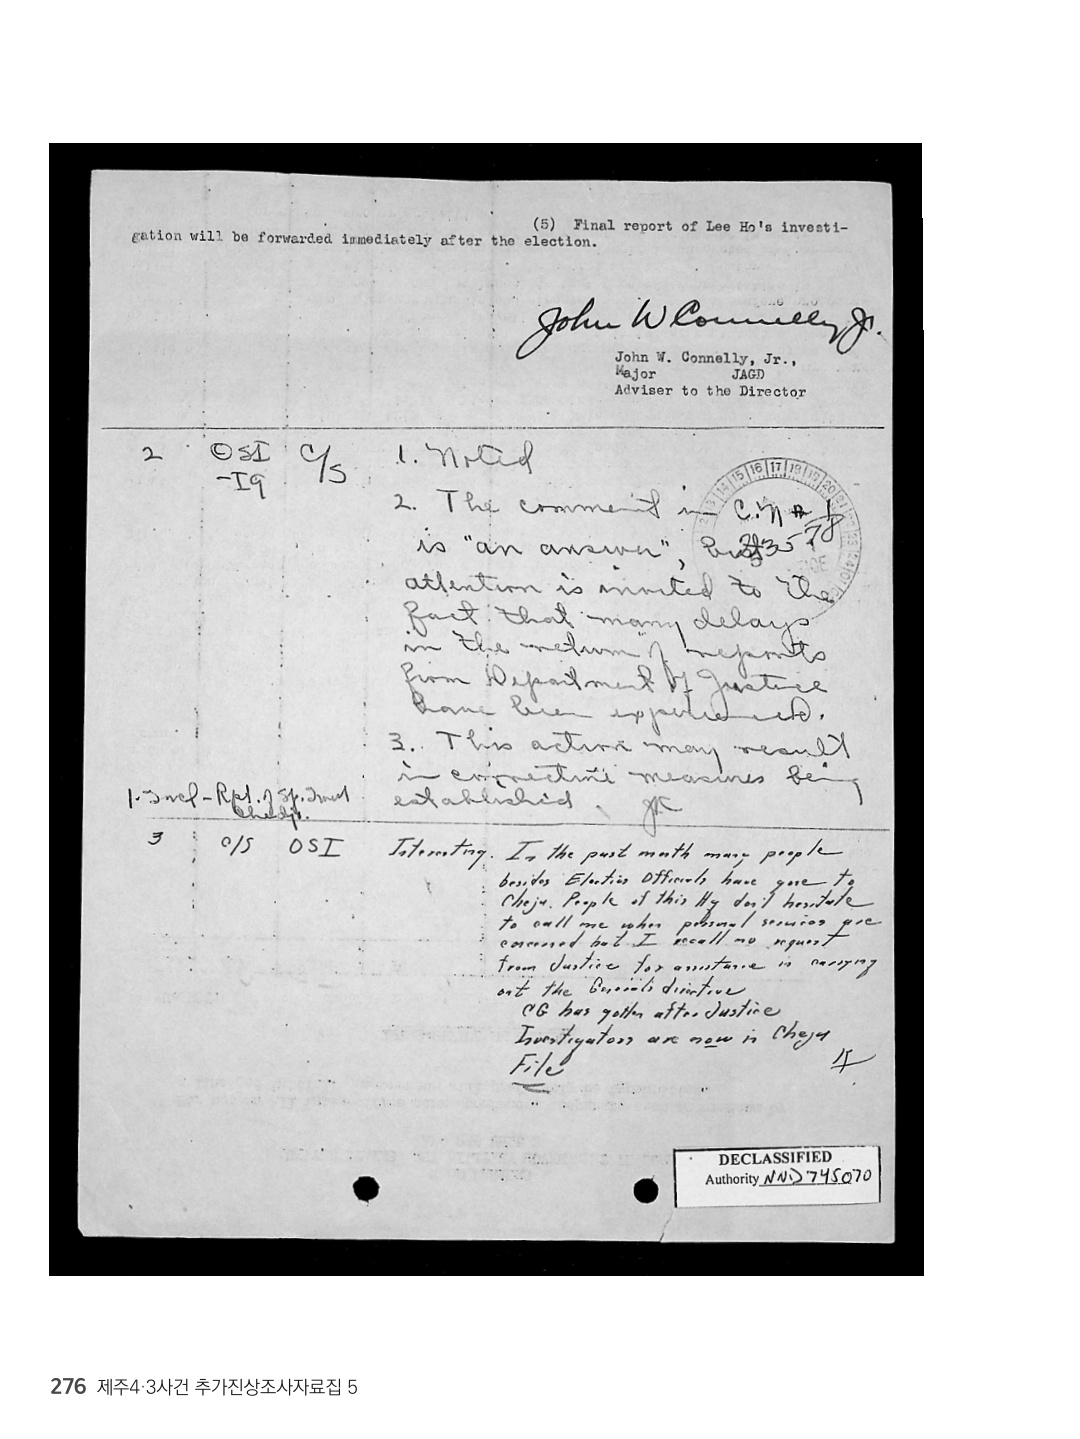 (5) Final report of Lee Ho's investi-
gation will be forwarded immediately after the election.
John W Connelly Jr.
John W. Connelly, Jr.,
Major JAGD
Adviser to the Director
2 OSI -IG C/S 1. Noted
2. The comment in C.N #1
is "an answer", but
attention is invited to the
fact that many delays
in the return of reports
from Department of Justice
have been experienced.
3. This action may result
in corrective measures being
established. JK
1. Incl - Rpt. of Sp. Invest
Cheju.
3 C/S OSI Interesting. In the past month many people
besides Election Officials have gone to
Cheju. People of this Hq don't hesitate
to call me when personal services are
concerned but I recall no request
from Justice for assistance in carrying
out the General's directive
CG has gotten after Justice
Investigators are now in Cheju
File
DECLASSIFIED
Authority NND 745070
276 제주4·3사건 추가진상조사자료집 5